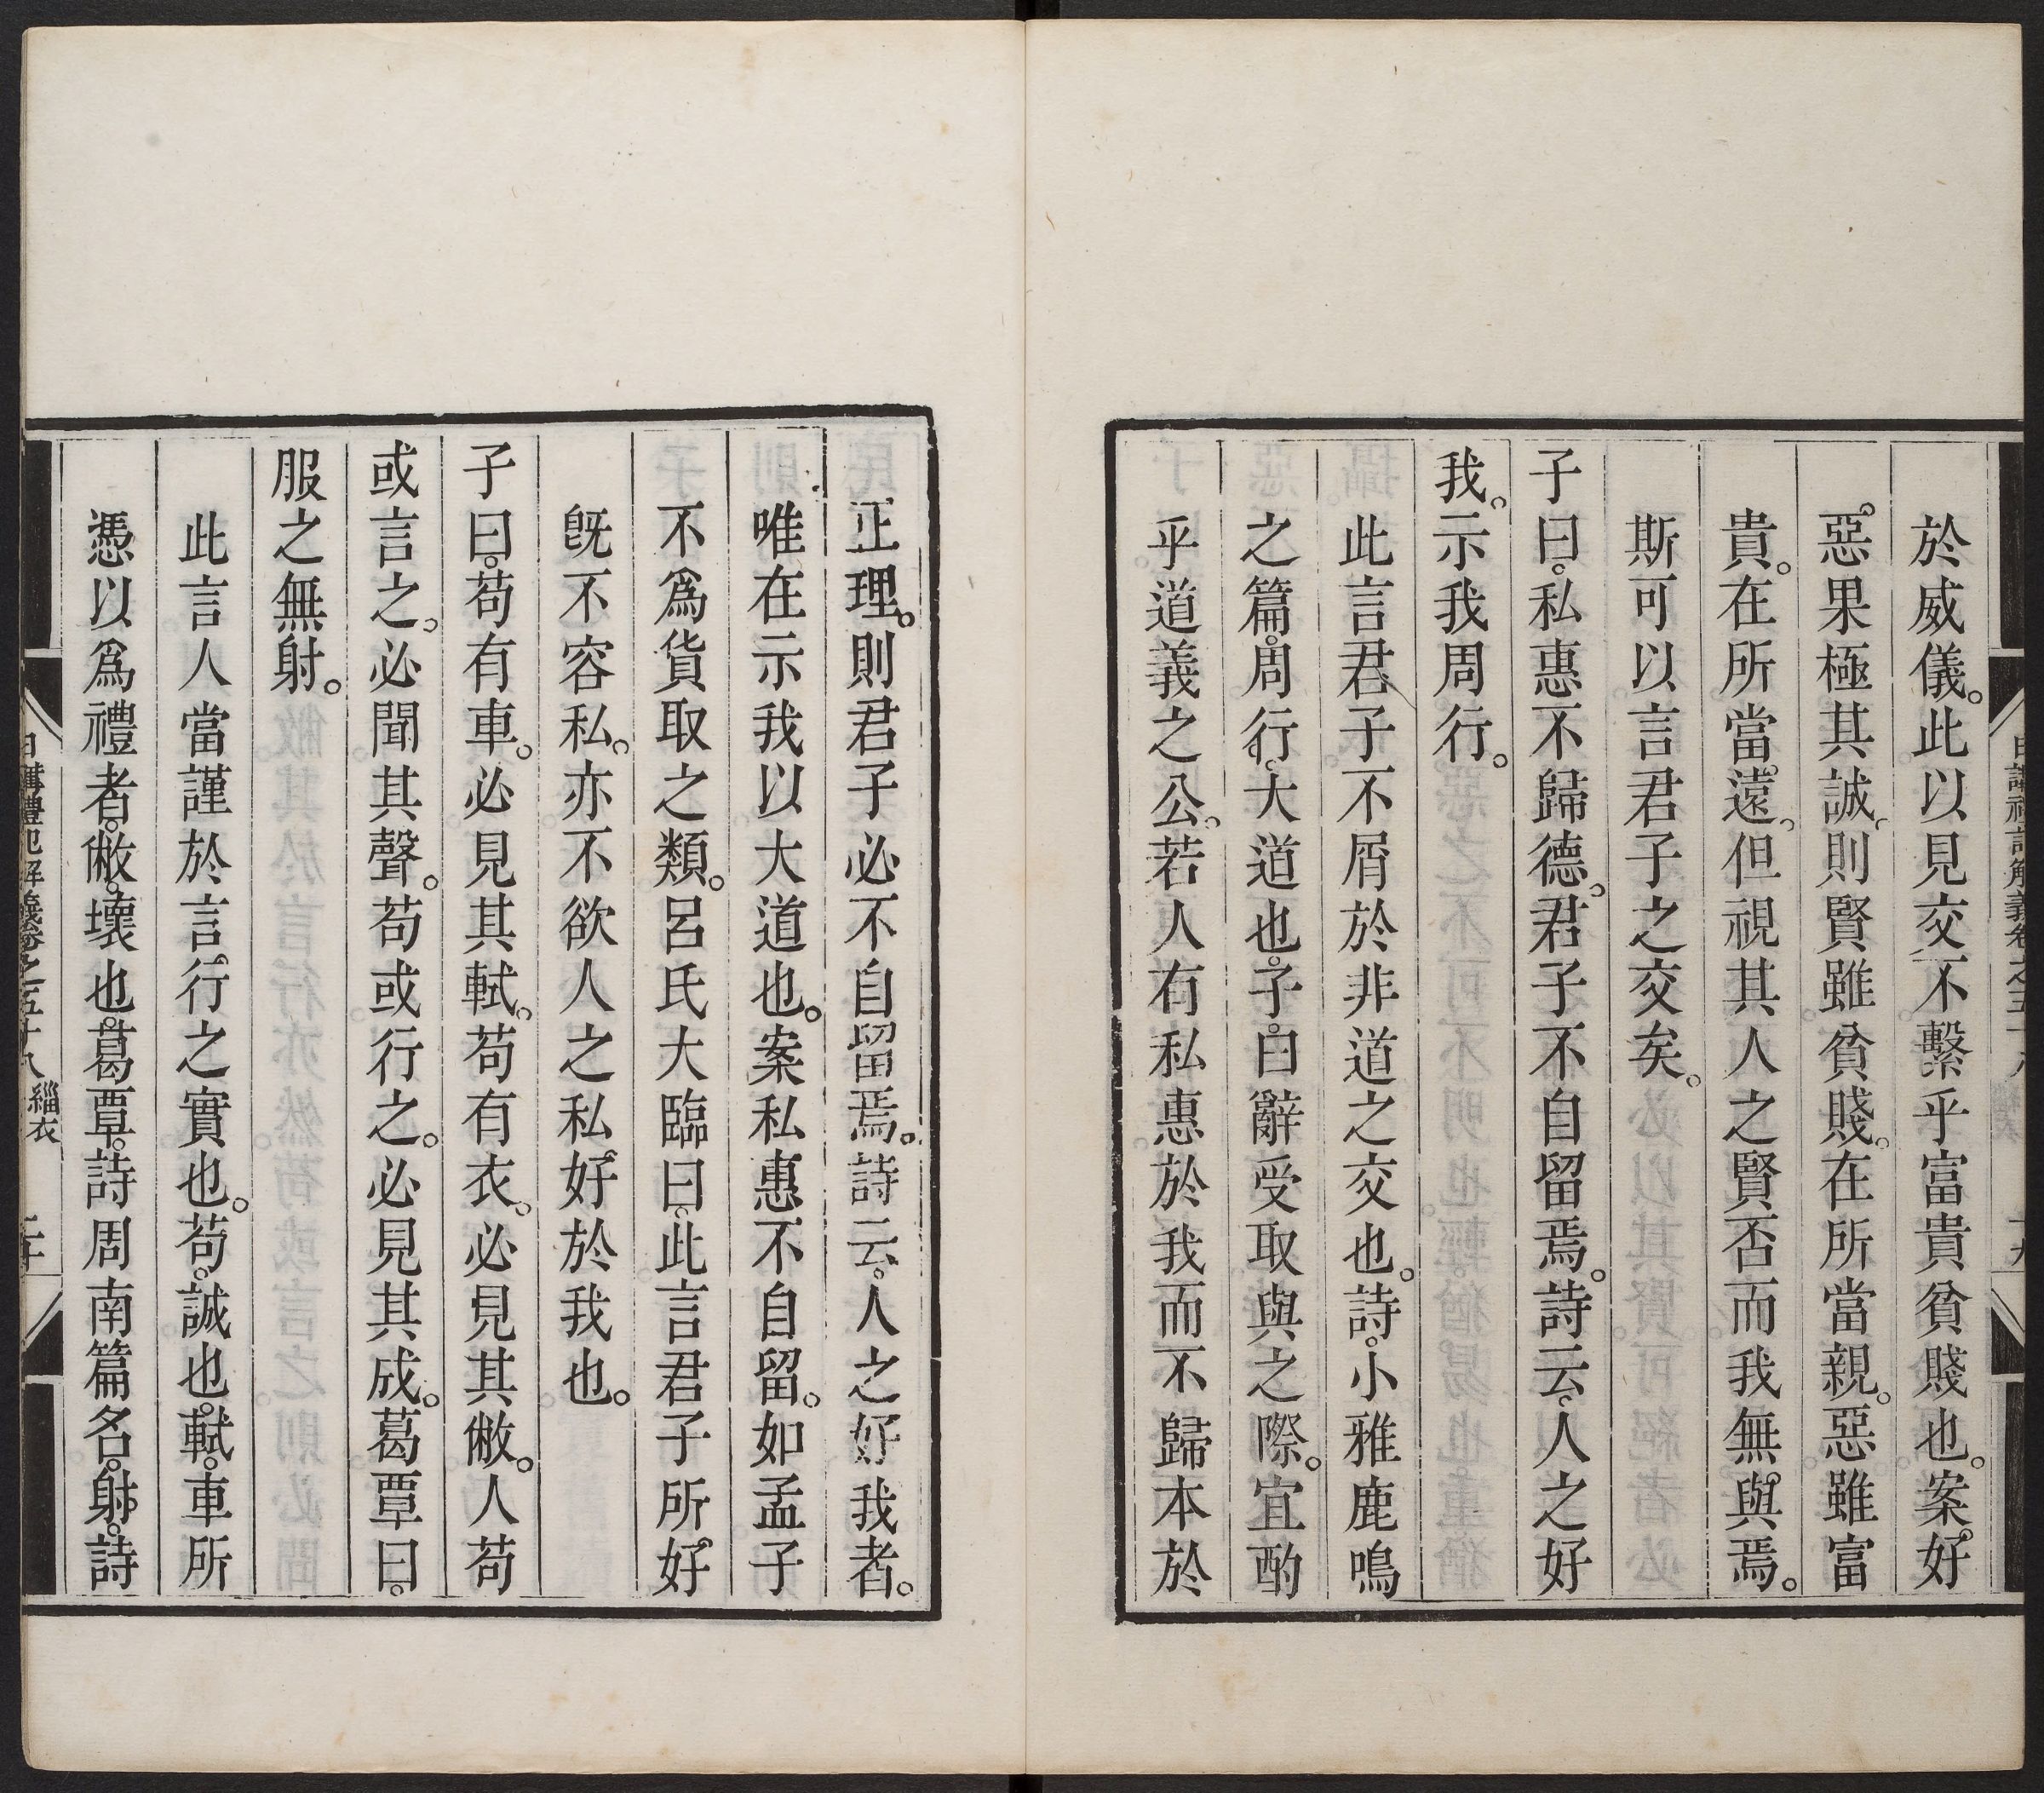 於威儀。此以見交不繫乎富貴貧賤也。案好
惡果極其誠。則賢雖貧賤。在所當親。惡雖富
貴。在所當遠。但視其人之賢否而我無與焉。
斯可以言君子之交矣。
子曰。私惠不歸德。君子不自留焉。詩云。人之好
我。示我周行。
此言君子不屑於非道之交也。詩。小雅鹿鳴
之篇。周行。大道也。子曰。辭受取與之際。宜酌
乎道義之公。若人有私惠於我而不歸本於
正理。則君子必不自留焉。詩云。人之好我者。
唯在示我以大道也。案私惠不自留。如孟子
不爲貨取之類。呂氏大臨曰。此言君子所好
旣不容私。亦不欲人之私好於我也。
子曰。苟有車。必見其軾。苟有衣。必見其敝。人苟
或言之。必聞其聲。苟或行之。必見其成。葛覃曰。
服之無射。
此言人當謹於言行之實也。苟。誠也。軾。車所
憑以爲禮者。敝。壞也。葛覃。詩周南篇名。射。詩
日講禮記解義卷之五十八 緇衣 二十